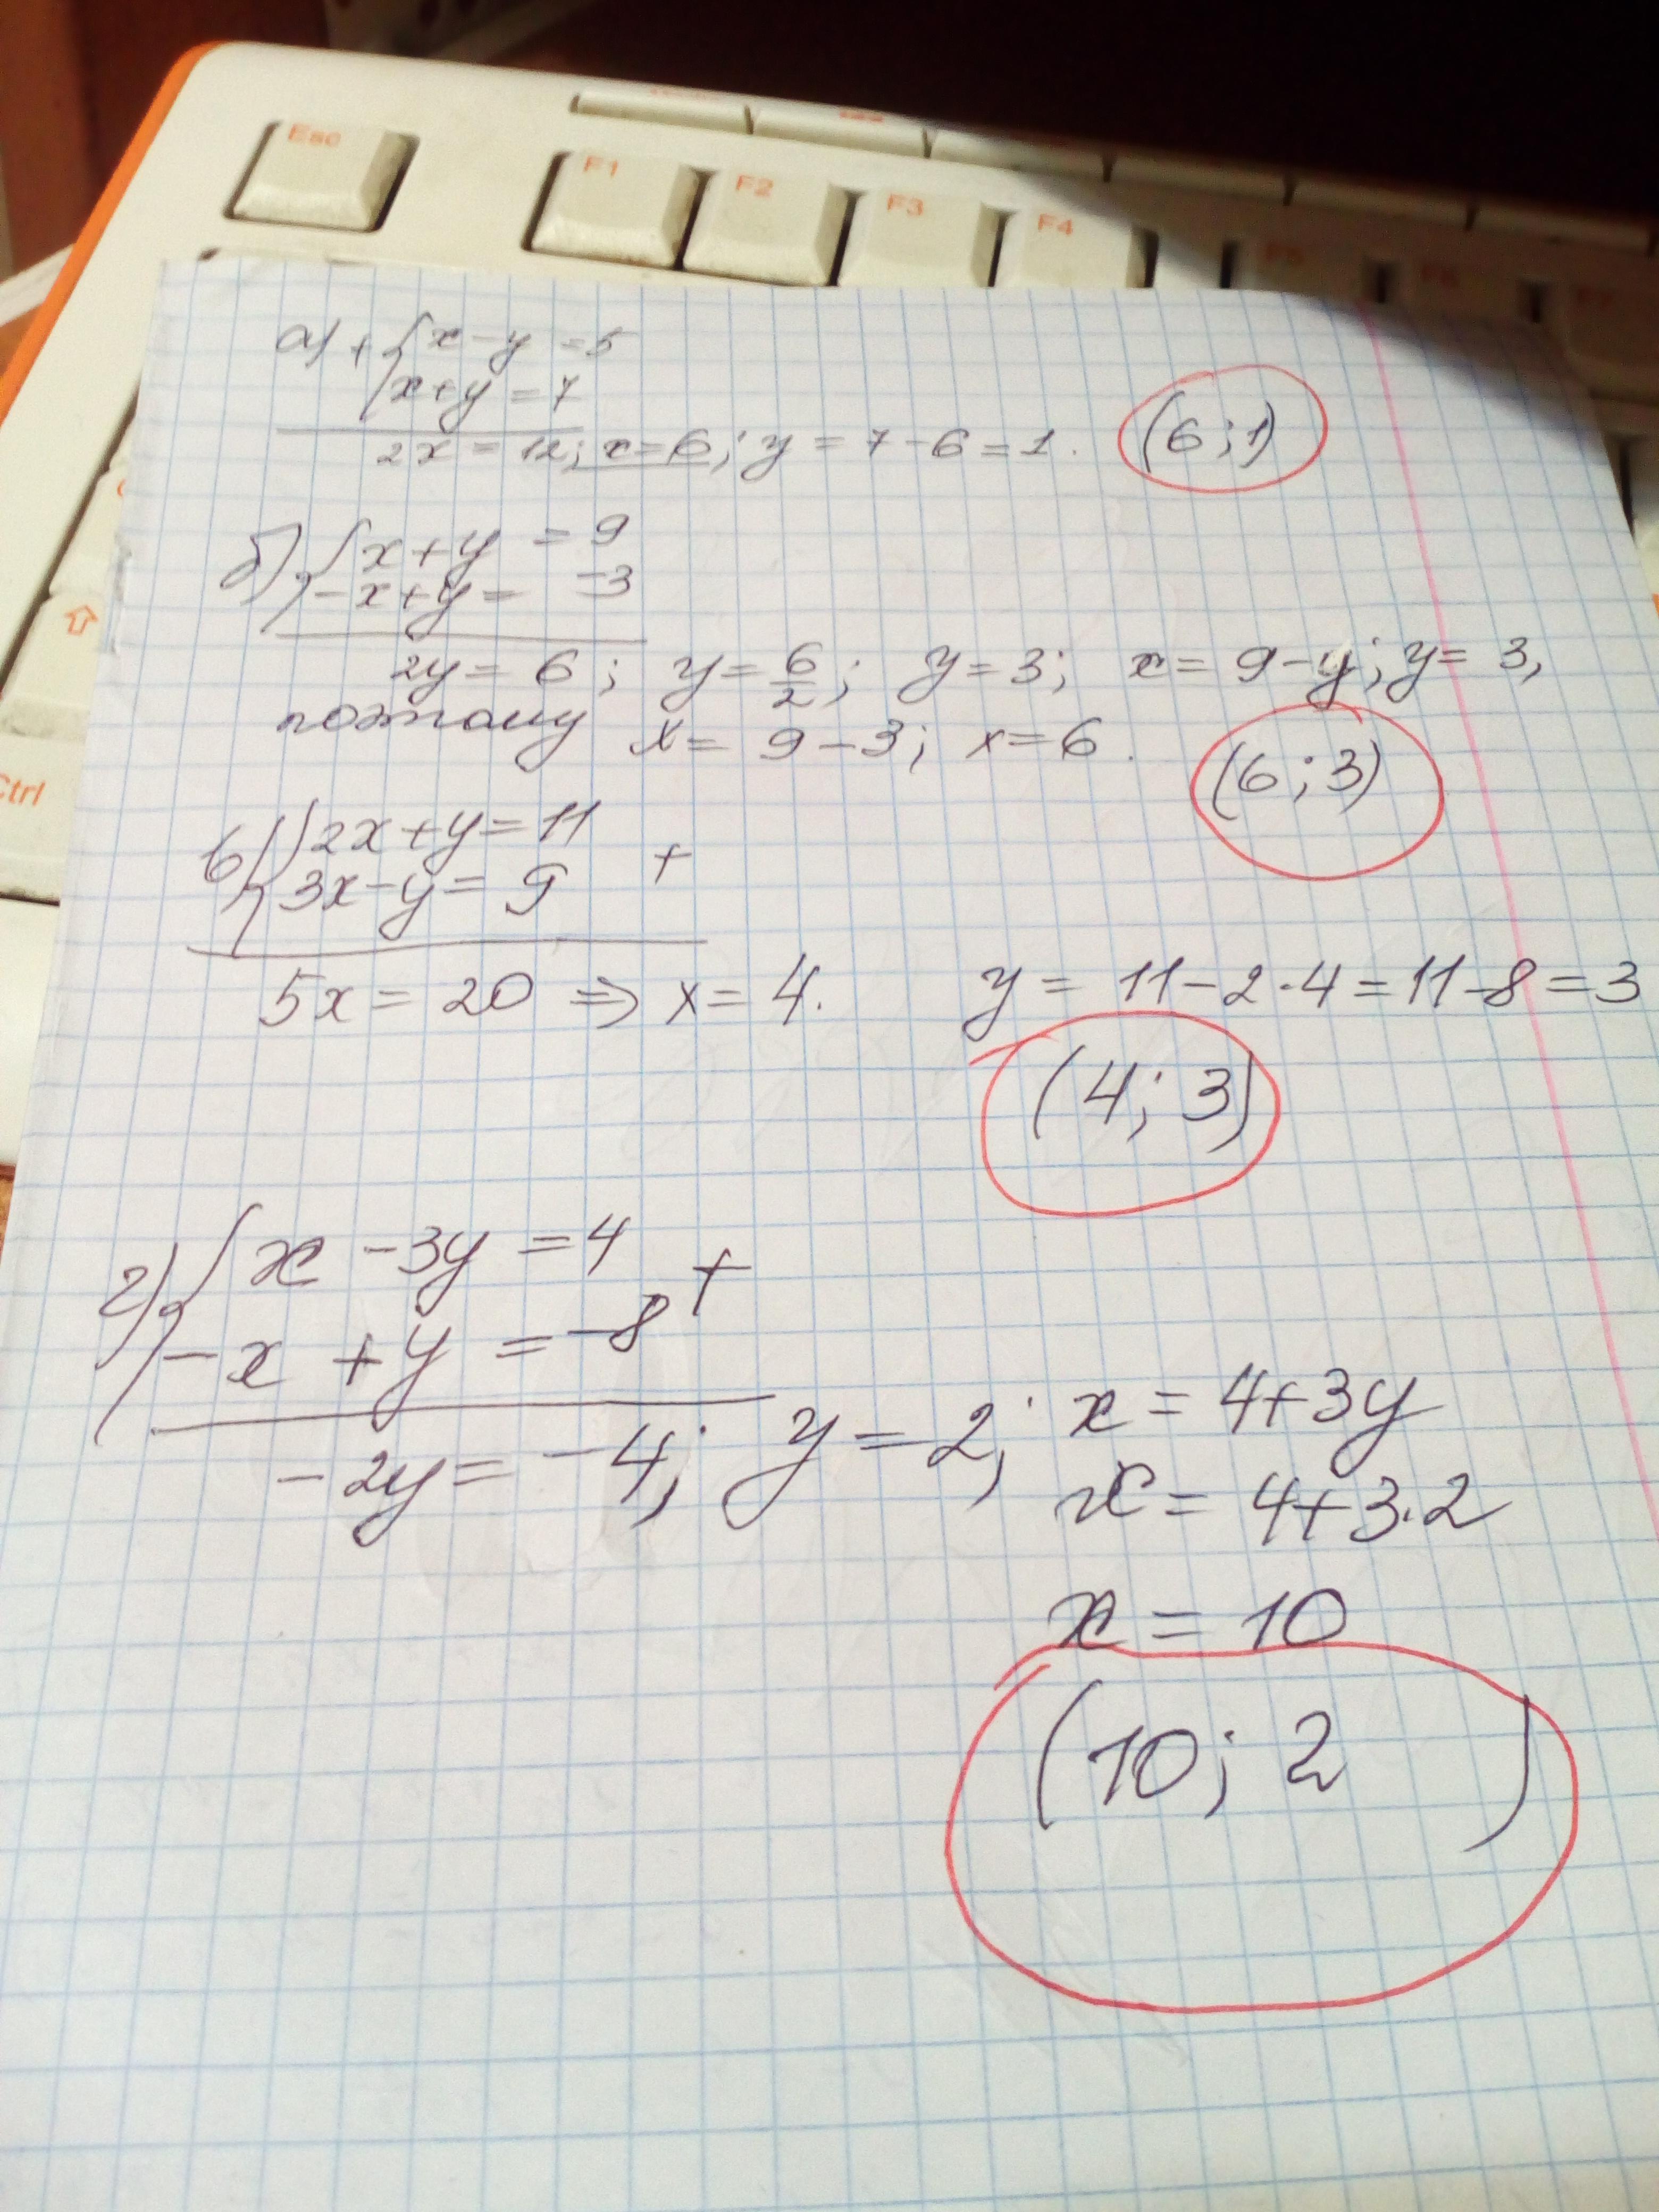 Esc F1 F2 F3 F4 F5 F6 F7
а) + { x - y = 5
x + y = 7
2x = 12; x = 6; y = 7 - 6 = 1. (6; 1)
б) { x + y = 9
-x + y = -3
2y = 6; y = 6/2; y = 3; x = 9 - y; y = 3,
поэтому x = 9 - 3; x = 6. (6; 3)
Ctrl
в) { 2x + y = 11
3x - y = 9 +
5x = 20 ⇒ x = 4. y = 11 - 2 · 4 = 11 - 8 = 3
(4; 3)
г) { x - 3y = 4
-x + y = -8 +
-2y = -4; y = 2; x = 4 + 3y
x = 4 + 3 · 2
x = 10
(10; 2)